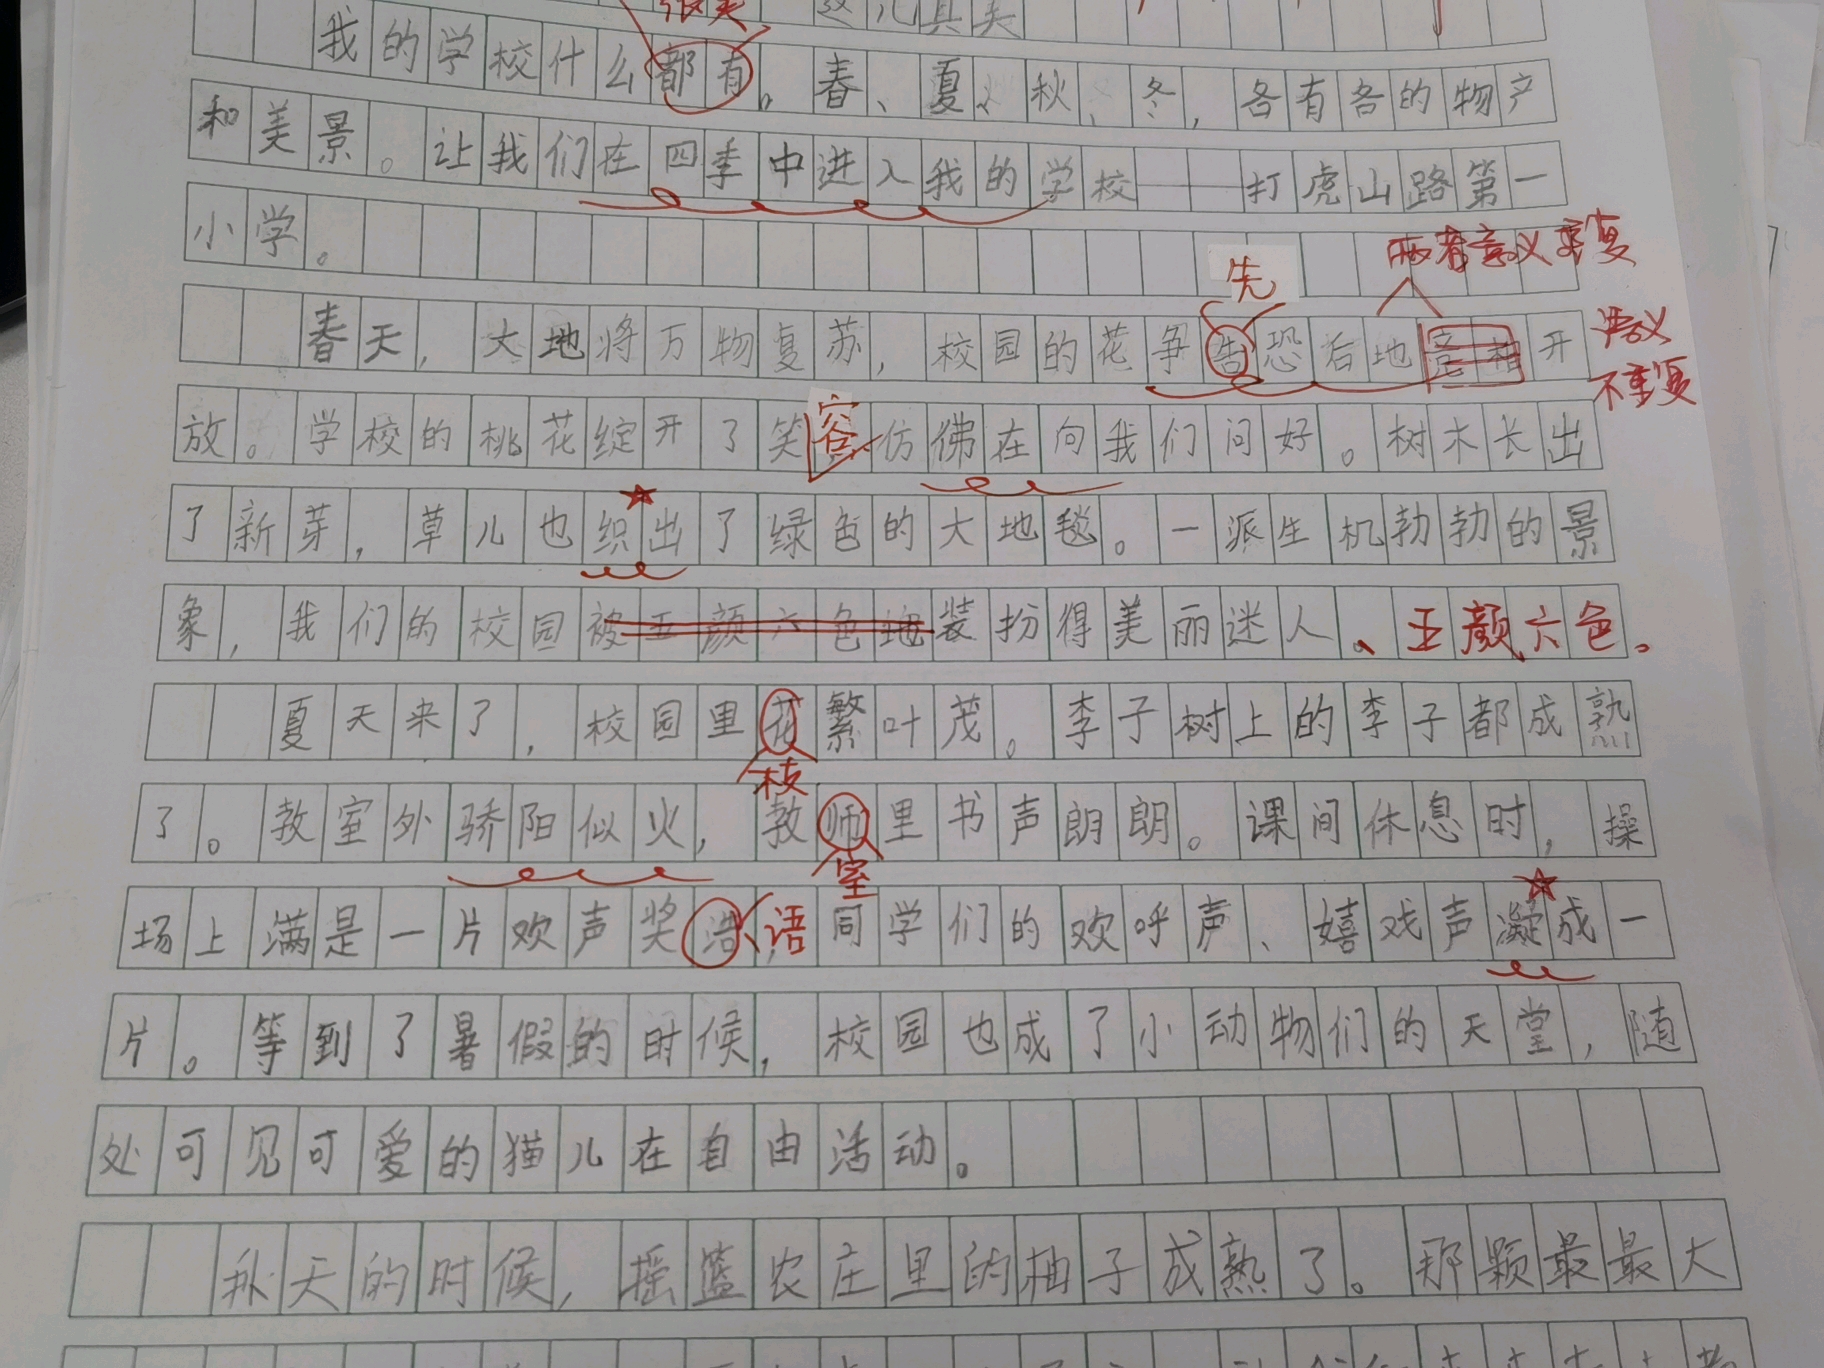 很美 这儿真美
我的学校什么都有。春、夏、秋、冬,各有各的物产
和美景。让我们在四季中进入我的学校——打虎山路第一
小学。
两者意义重复
先
春天,大地将万物复苏,校园的花争告恐后地竞相开
意义
不重复
放。学校的桃花绽开了笑容,仿佛在向我们问好。树木长出
了新芽,草儿也织出了绿色的大地毯。一派生机勃勃的景
象,我们的校园被五颜六色地装扮得美丽迷人、五颜六色。
夏天来了,校园里花繁叶茂。李子树上的李子都成熟
枝
了。教室外骄阳似火,教师里书声朗朗。课间休息时,操
室
场上满是一片欢声奖浯,语同学们的欢呼声、嬉戏声凝成一
片。等到了暑假的时候,校园也成了小动物们的天堂,随
处可见可爱的猫儿在自由活动。
秋天的时候,摇篮农庄里的柚子成熟了。那颗最最大